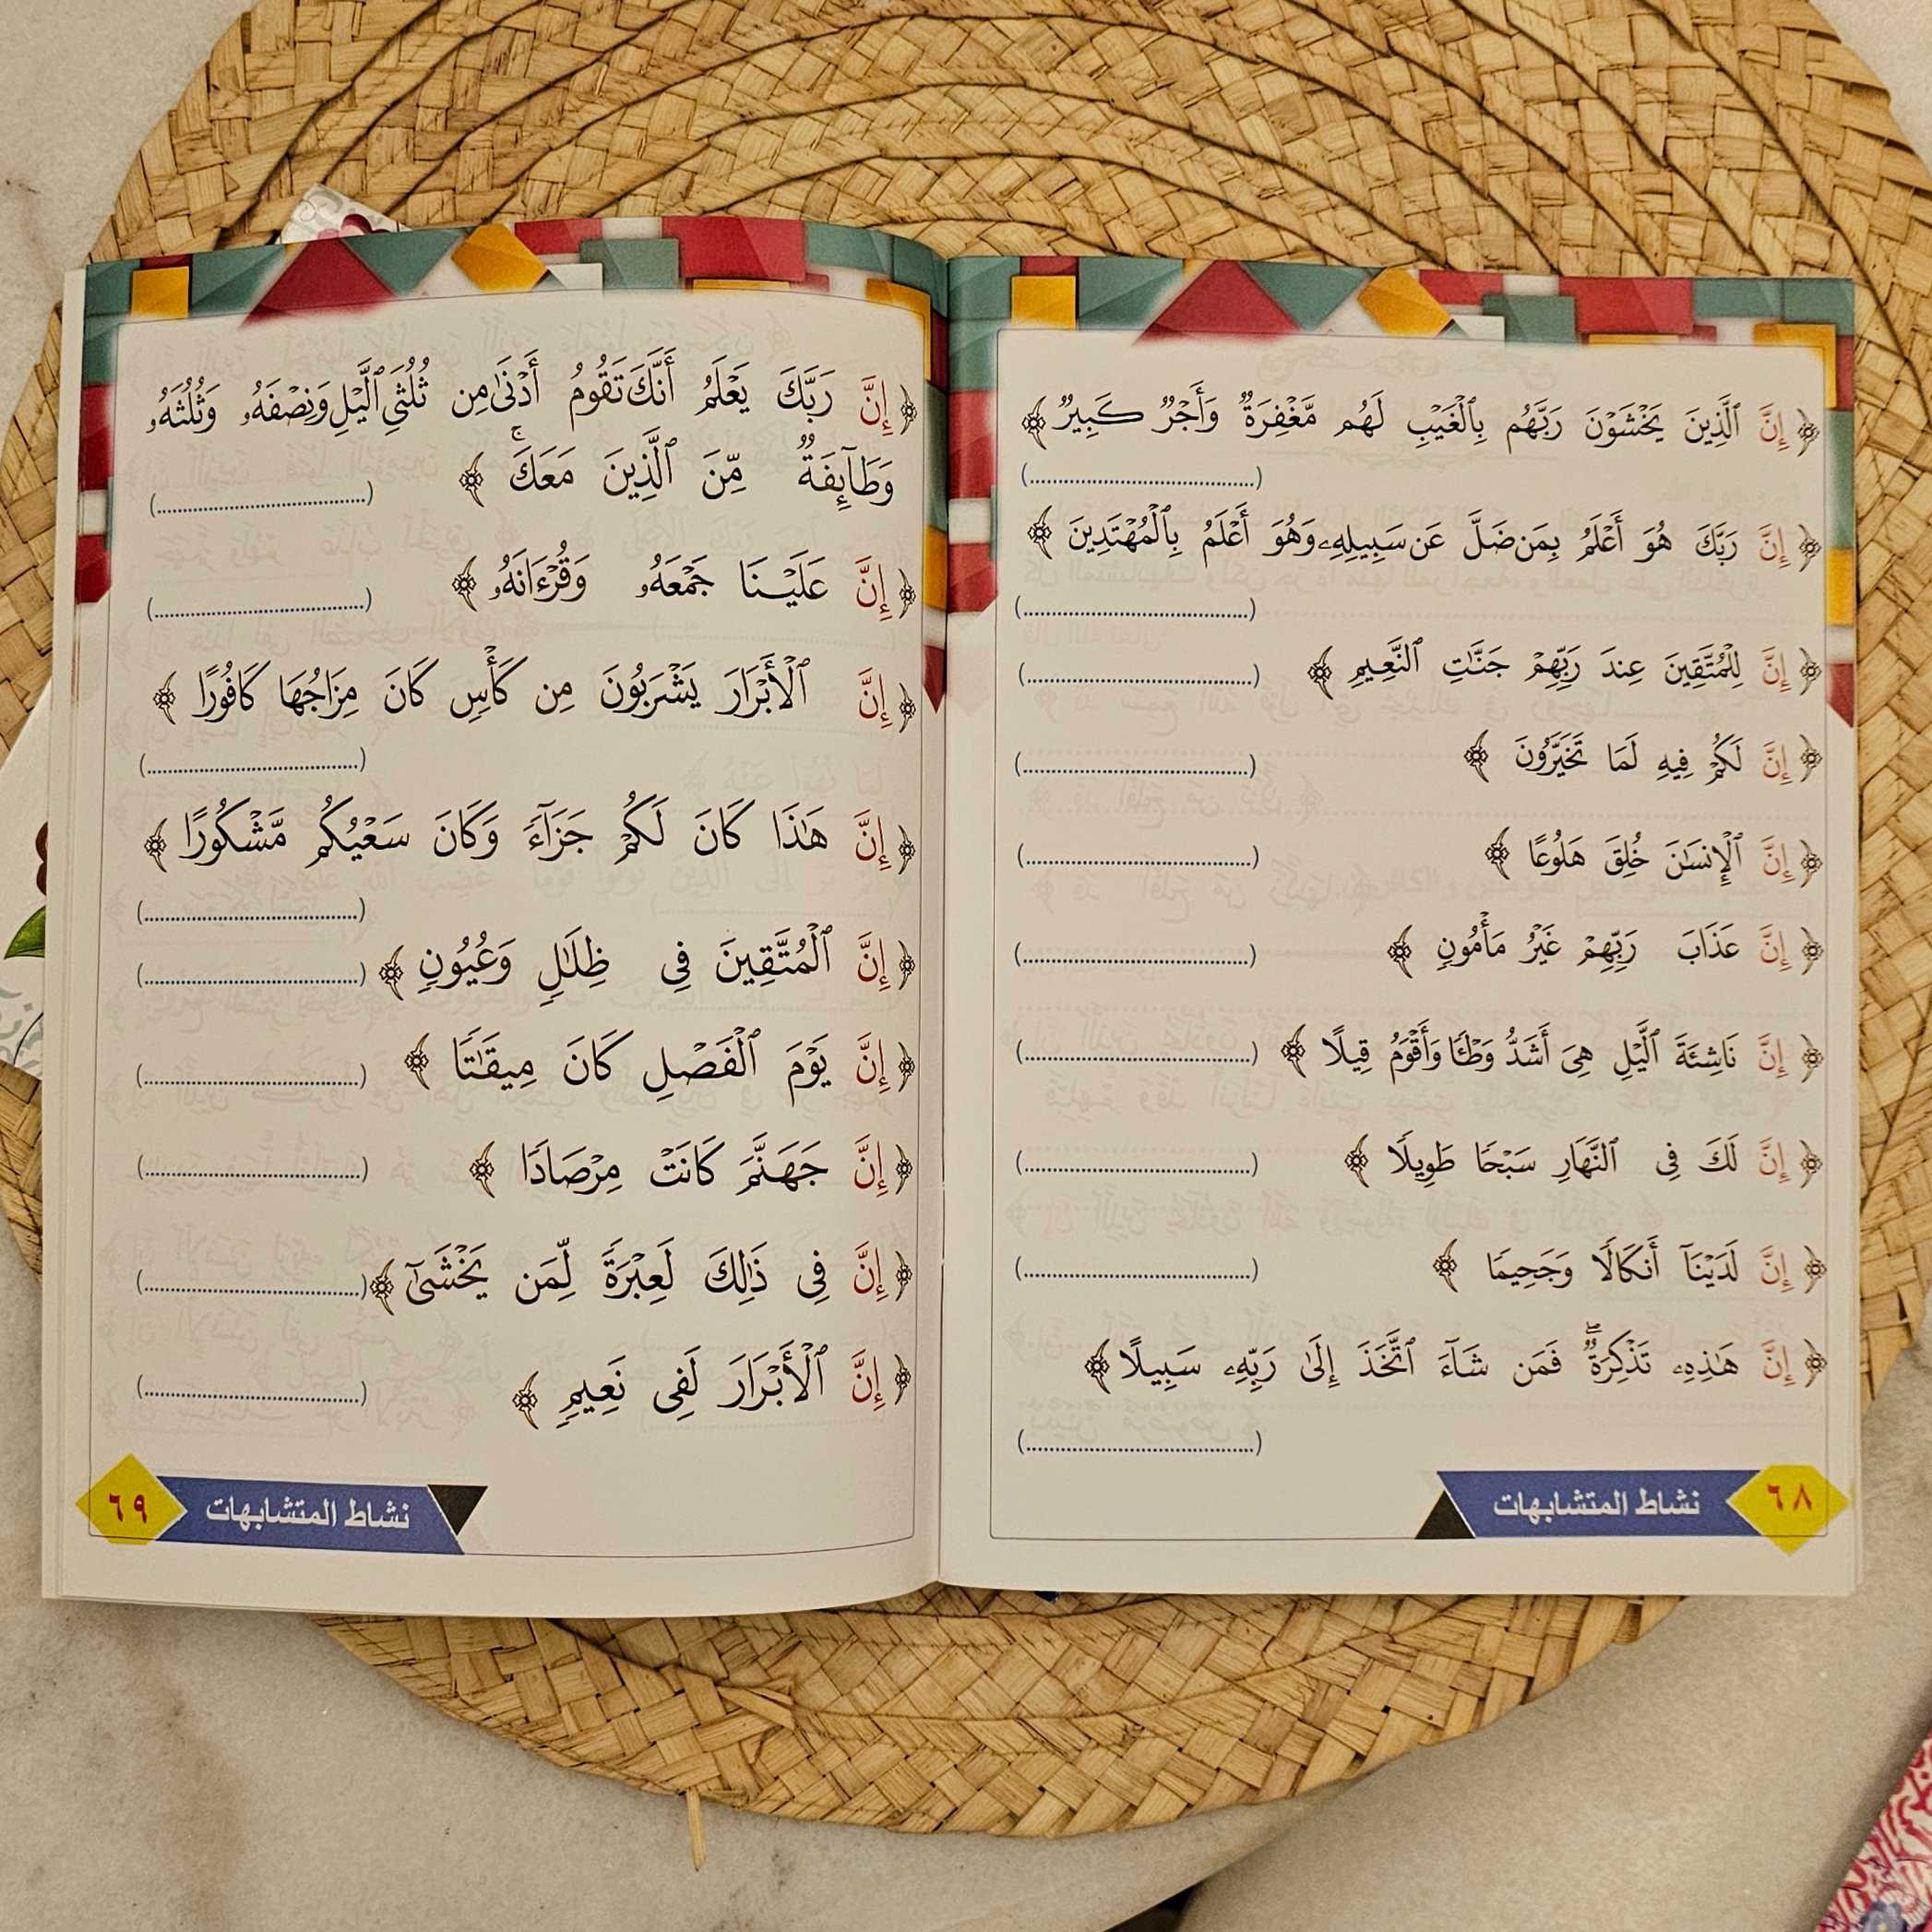 ﴿ إِنَّ ٱلَّذِينَ يَخۡشَوۡنَ رَبَّهُم بِٱلۡغَيۡبِ لَهُم مَّغۡفِرَةٞ وَأَجۡرٞ كَبِيرٞ ﴾
(............................................)
﴿ إِنَّ رَبَّكَ هُوَ أَعۡلَمُ بِمَن ضَلَّ عَن سَبِيلِهِۦ وَهُوَ أَعۡلَمُ بِٱلۡمُهۡتَدِينَ ﴾
(............................................)
﴿ إِنَّ لِلۡمُتَّقِينَ عِندَ رَبِّهِمۡ جَنَّٰتِ ٱلنَّعِيمِ ﴾ (............................................)
﴿ إِنَّ لَكُمۡ فِيهِ لَمَا تَخَيَّرُونَ ﴾ (............................................)
﴿ إِنَّ ٱلۡإِنسَٰنَ خُلِقَ هَلُوعًا ﴾ (............................................)
﴿ إِنَّ عَذَابَ رَبِّهِمۡ غَيۡرُ مَأۡمُونٖ ﴾ (............................................)
﴿ إِنَّ نَاشِئَةَ ٱلَّيۡلِ هِيَ أَشَدُّ وَطۡـٔٗا وَأَقۡوَمُ قِيلًا ﴾ (............................................)
﴿ إِنَّ لَكَ فِي ٱلنَّهَارِ سَبۡحٗا طَوِيلٗا ﴾ (............................................)
﴿ إِنَّ لَدَيۡنَآ أَنكَالٗا وَجَحِيمٗا ﴾ (............................................)
﴿ إِنَّ هَٰذِهِۦ تَذۡكِرَةٞۖ فَمَن شَآءَ ٱتَّخَذَ إِلَىٰ رَبِّهِۦ سَبِيلًا ﴾
(............................................)
نشاط المتشابهات ٦٨
﴿ إِنَّ رَبَّكَ يَعۡلَمُ أَنَّكَ تَقُومُ أَدۡنَىٰ مِن ثُلُثَيِ ٱلَّيۡلِ وَنِصۡفَهُۥ وَثُلُثَهُۥ
وَطَآئِفَةٞ مِّنَ ٱلَّذِينَ مَعَكَۚ ﴾ (............................................)
﴿ إِنَّ عَلَيۡنَا جَمۡعَهُۥ وَقُرۡءَانَهُۥ ﴾ (............................................)
﴿ إِنَّ ٱلۡأَبۡرَارَ يَشۡرَبُونَ مِن كَأۡسٖ كَانَ مِزَاجُهَا كَافُورًا ﴾
(............................................)
﴿ إِنَّ هَٰذَا كَانَ لَكُمۡ جَزَآءٗ وَكَانَ سَعۡيُكُم مَّشۡكُورًا ﴾
(............................................)
﴿ إِنَّ ٱلۡمُتَّقِينَ فِي ظِلَٰلٖ وَعُيُونٖ ﴾ (............................................)
﴿ إِنَّ يَوۡمَ ٱلۡفَصۡلِ كَانَ مِيقَٰتٗا ﴾ (............................................)
﴿ إِنَّ جَهَنَّمَ كَانَتۡ مِرۡصَادٗا ﴾ (............................................)
﴿ إِنَّ فِي ذَٰلِكَ لَعِبۡرَةٗ لِّمَن يَخۡشَىٰٓ ﴾ (............................................)
﴿ إِنَّ ٱلۡأَبۡرَارَ لَفِي نَعِيمٖ ﴾ (............................................)
نشاط المتشابهات ٦٩